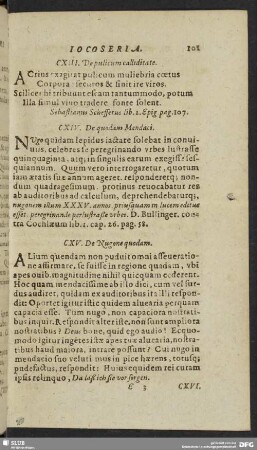 IOCOSERIA. 101
CXIII. De pulicum calliditate.
ACrius exagitat pulicum muliebria cœtus
Corpora: securos & sinit ire viros.
Scilicet hi tribuunt escam tantummodo, potum
Illa simul vino tradere sonte solent.
Sebastianus Scheffetus lib. 2. Epig pag. 107.
CXIV. De quodam Mendaci.
NUgo quidam lepidus iactare solebat in conui-
uiis, celebres se peregrinando vrbes lustrasse
quinquaginta, atq; in singulis earum exegisse ses-
quiannum. Quum vero interrogaretur, quotum
iam ætatis suæ annum ageret, responderetq; non-
dum quadragesimum, protinus reuocabatur res
ab auditoribus ad calculum, deprehendebaturq;
nugonem illum XXXV. annos priusquam in lucem editus
esset, peregrinando perlustrasse vrbes. D. Bullinger. con-
tra Cochlæum lib. 2. cap. 26. pag. 58.
CXV. De Nugone quodam.
ALium quendam non puduit omni asseueratio-
ne affirmare, se fuisse in regione quadam, vbi
apes ouib. magnitudine nihil quicquam cederent.
Hoc quam mendacissime ab isto dici, cum vel sur-
dus audiret, quidam ex auditoribus ita illi respon-
dit: Oportet igitur istic quidem aluearia perquam
capacia esse. Tum nugo, non capaciora nostrati-
bus inquit. Respondit alter iste, non sunt ampliora
nostratibus? Deus bone, quid ego audio? Ecquo-
modo igitur ingētes istæ apes tua aluearia, nostra-
tibus haud maiora, intrare possunt? Cui nugo in
mendacio suo veluti mus in pice hærens, totusq;
pudefactus, respondit: Huiusce quidem rei curam
ipsis relinquo, Da laß ich sie vor sorgen.
G 3 CXVI.
SLUB
DFG